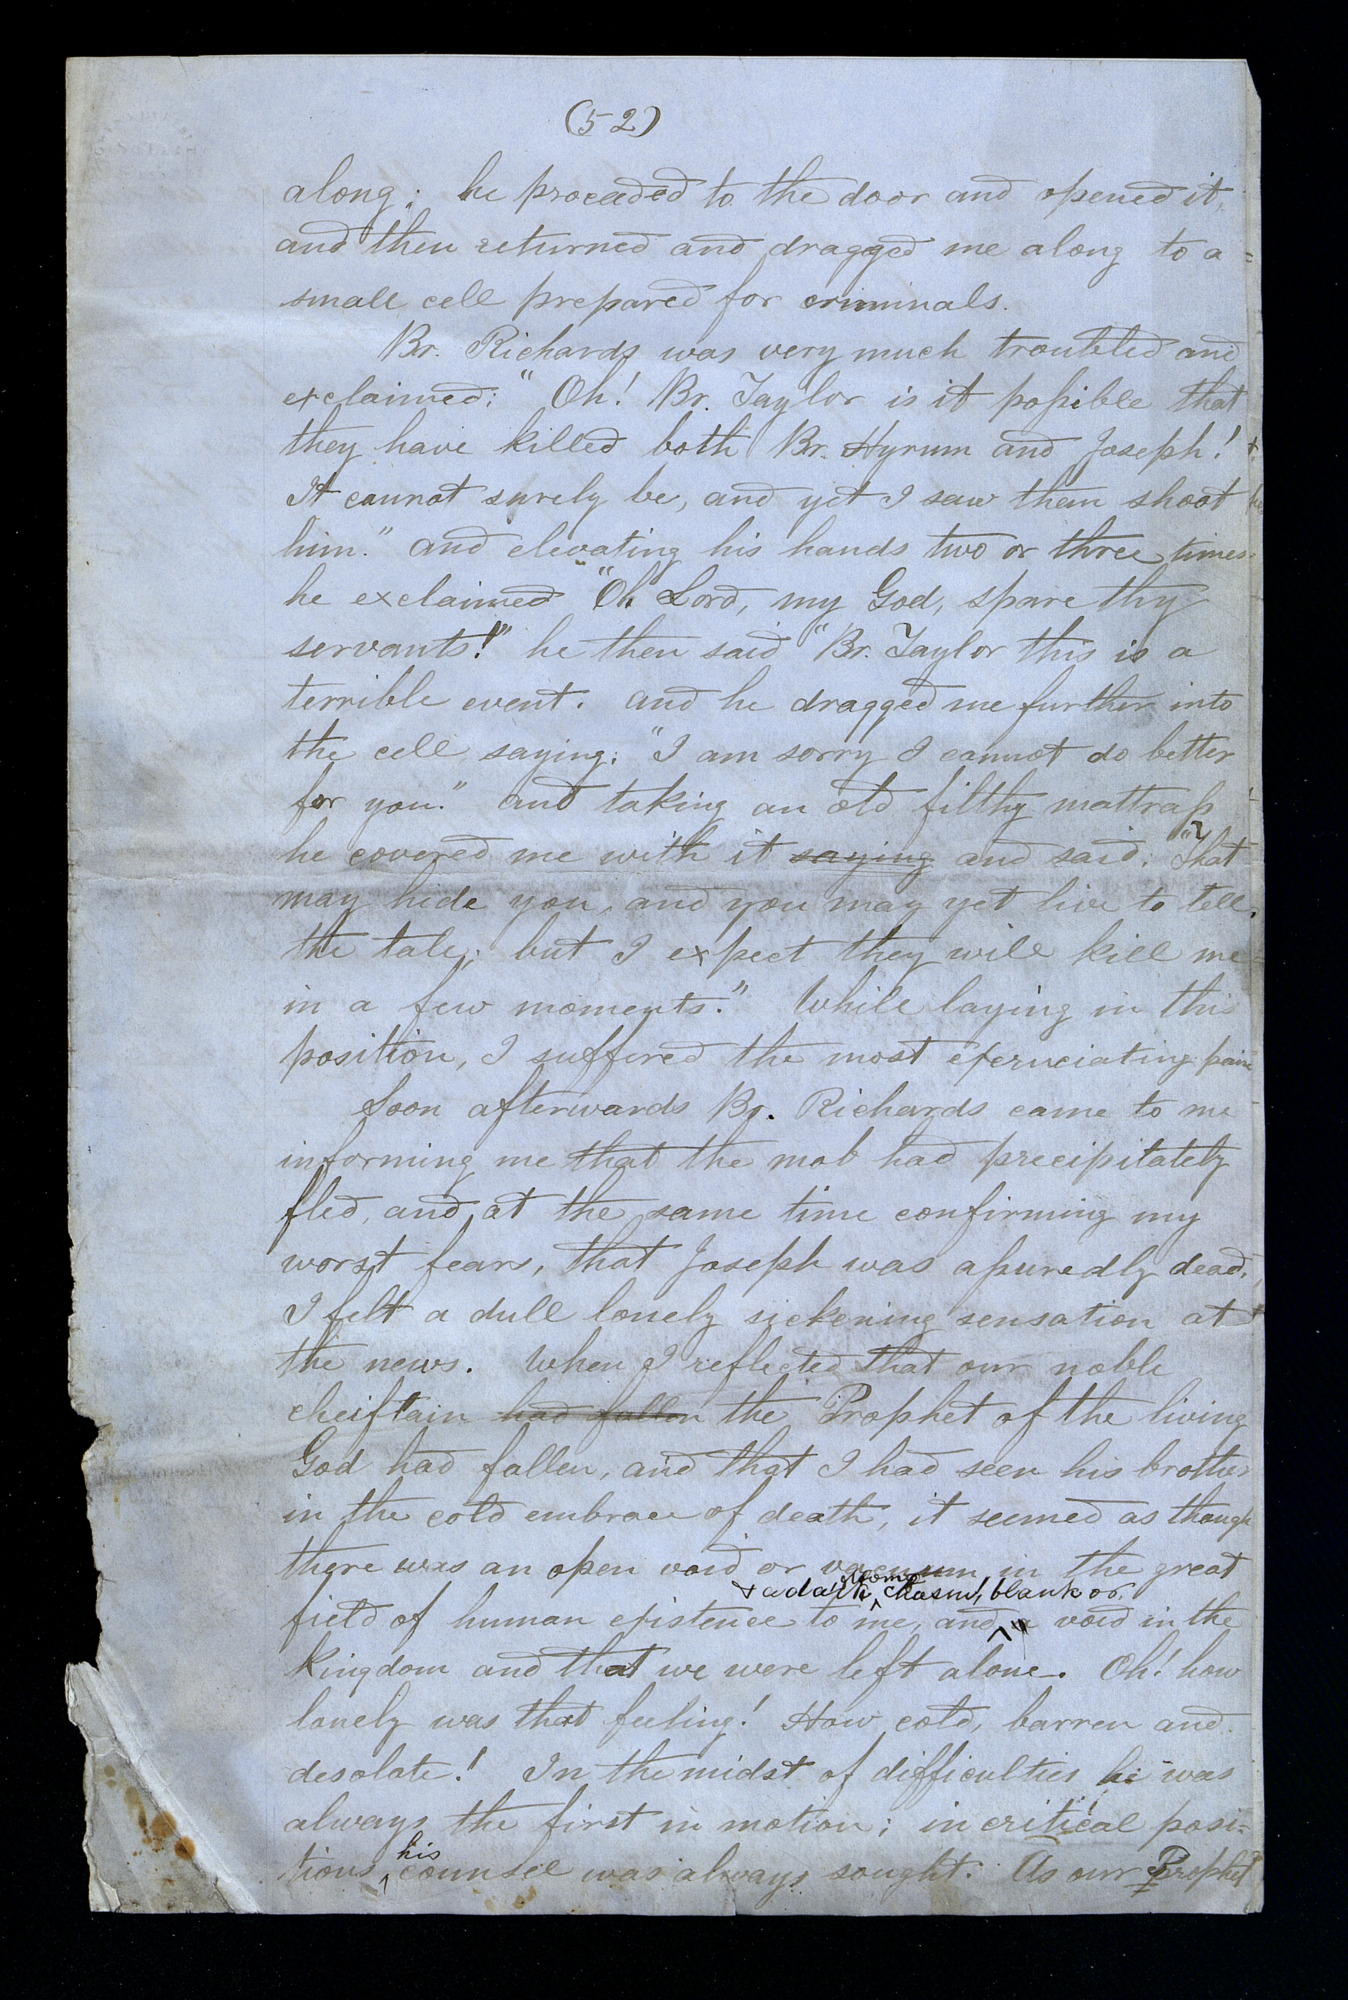 (52)
along; he proceeded to the door and opened it,
and then returned and dragged me along to a
small cell prepared for criminals.
Br. Richards was very much troubled and
exclaimed: "Oh! Br. Taylor is it possible that
they have killed both Br. Hyrum and Joseph!
It cannot surely be, and yet I saw them shoot
him." and elevating his hands two or three times
he exclaimed "Oh Lord, my God, spare thy
servants!" he then said "Br. Taylor this is a
terrible event. and he dragged me further into
the cell saying: "I am sorry I cannot do better
for you." and taking an old filthy mattrass
he covered me with it saying and said: "That
may hide you, and you may yet live to tell
the tale; but I expect they will kill me
in a few moments." While laying in this
position, I suffered the most excruciating pain
Soon afterwards Br. Richards came to me
informing me that the mob had precipitately
fled, and at the same time confirming my
worst fears, that Joseph was assuredly dead.
I felt a dull lonely sickening sensation at
the news. When I reflected that our noble
cheiftain had fallen the Prophet of the living
God had fallen, and that I had seen his brother
in the cold embrace of death, it seemed as though
there was an open void or vacuum in the great
+ a dark gloomy chasm, blank or
field of human existence to me, and a void in the
kingdom and that we were left alone. Oh! how
lonely was that feeling! How cold, barren and
desolate! In the midst of difficulties he was
always the first in motion; in critical posi-
tions his counsel was always sought. As our Prophet